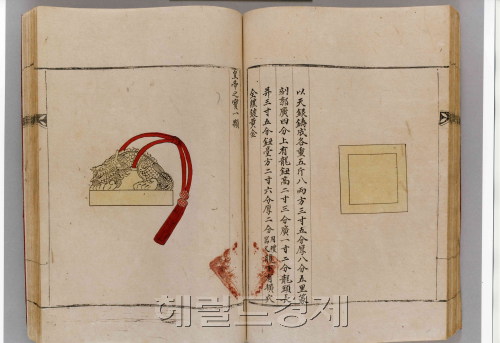 以天銀鑄成各重五斤八兩方三寸五分厚八分五里
剜郭廣四分上有龍鈕高二寸三分廣一寸二分龍頭長
并三寸五分鈕臺方二寸六分厚二分 用禮器尺
全體鍍黃金
皇帝之寶一顆
헤럴드경제